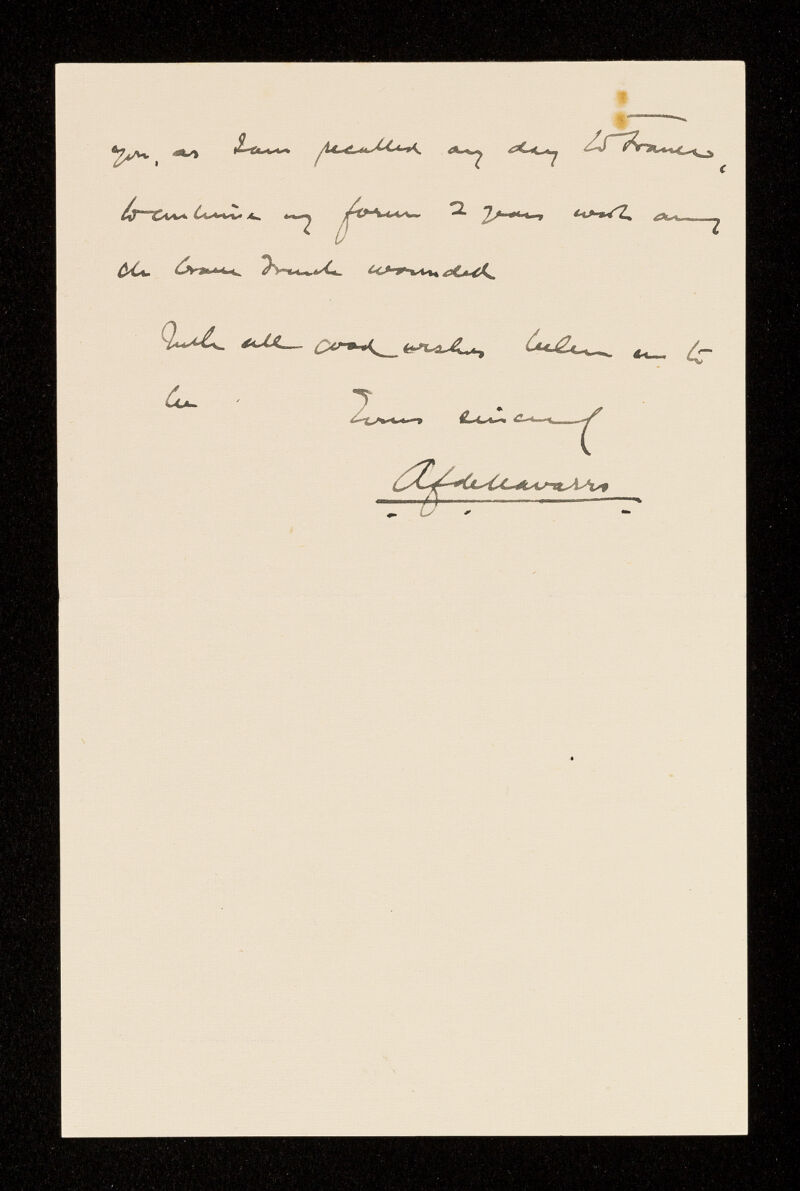 you, as I am recalled any day to France,
to continue my former 2 years work among
the brave French wounded
With all good wishes believe me to
be
Yours sincerely
AfdeNavarro